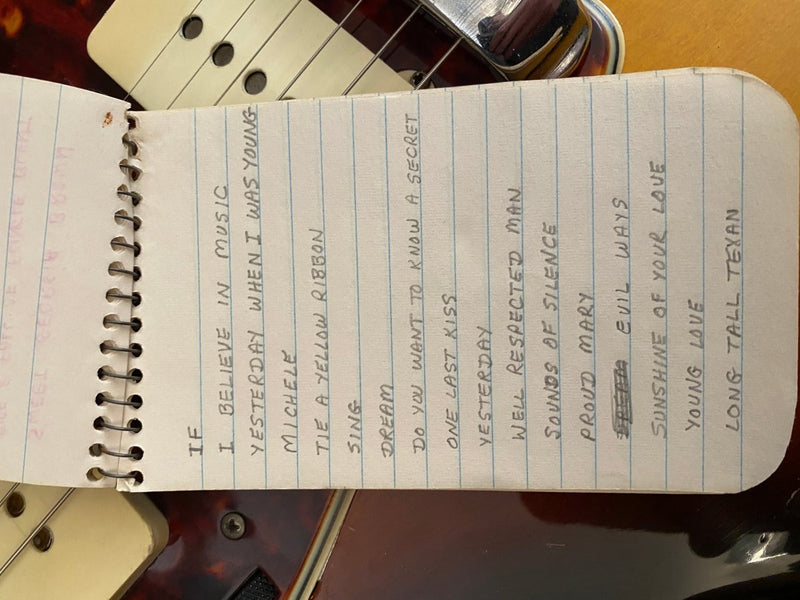 IF
I BELIEVE IN MUSIC
YESTERDAY WHEN I WAS YOUNG
MICHELE
TIE A YELLOW RIBBON
SING
DREAM
DO YOU WANT TO KNOW A SECRET
ONE LAST KISS
YESTERDAY
WELL RESPECTED MAN
SOUNDS OF SILENCE
PROUD MARY
EVIL WAYS
SUNSHINE OF YOUR LOVE
YOUNG LOVE
LONG TALL TEXAN
SWEET GEORGIA BROWN